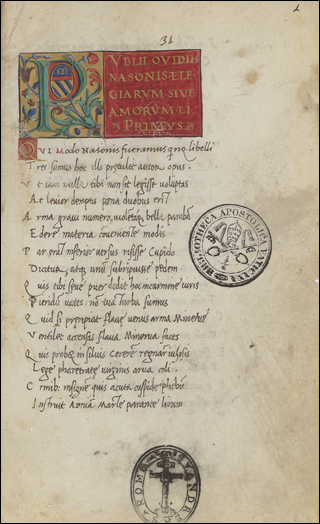 31
1
PVBLII OVIDII
NASONIS ELE
GIARVM SIVE
AMORVM LI
PRIMVS
QVI Modo Nasonis fueramus quinq libelli
Tres sumus hoc illi pretulit autor opus
Vt iam nulla tibi non sit legisse voluptas
At levior demptis pena duobus erit
Arma gravi numero, violentaq bella parabā
Edere materia conveniente modis
Par erat inferior versus risisse Cupido
Dicitur, atq unū subripuisse pedem
Quis tibi seve puer dedit hoc in carmine iuris
Pieridū vates nō tua turba sumus
Quid si preripiat flave venus arma Minerve
Ventilet accensis flava Minerva faces
Quis probet in silvis Cererē regnare iugosis
Lege pharetrate virginis arva coli
Crinib. insignē quis acuta cuspide phebū
Instruat Aoniā Marte parante liram
BIBLIOTHECA APOSTOLICA VATICANA